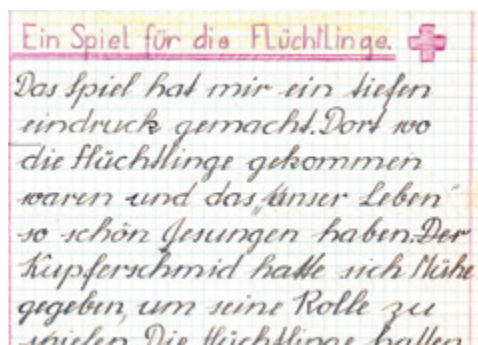 Ein Spiel für die Flüchtlinge.
Das Spiel hat mir ein tiefen
eindruck gemacht. Dort wo
die Flüchtlinge gekommen
waren und das „Unser Leben“
so schön gesungen haben. Der
Kupferschmid hatte sich Mühe
gegeben, um seine Rolle zu
spielen. Die Flüchtlinge hatten